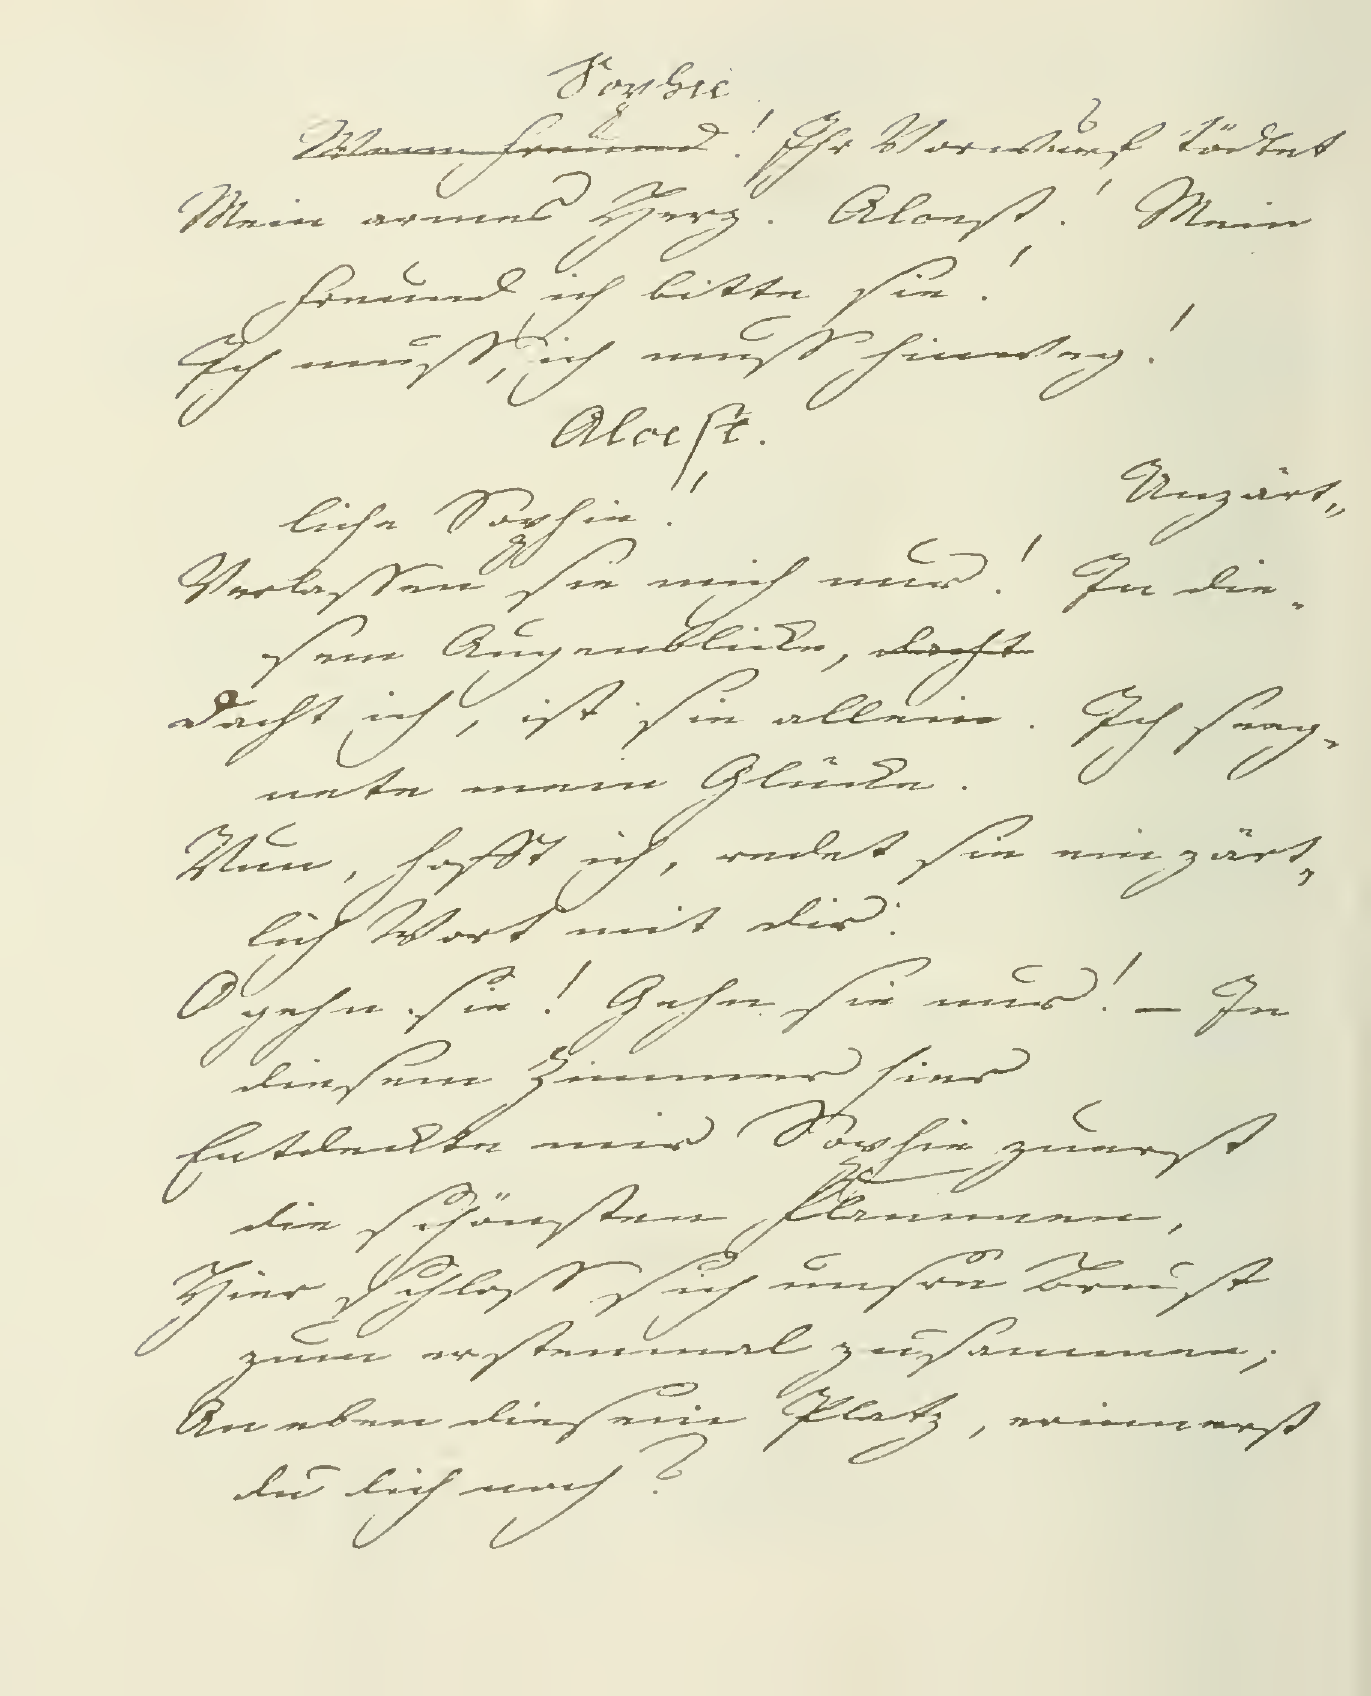 Sophie
Mein Freund! Ihr Vorwurf tödtet
Mein armes Herz. Alcest! Mein
Freund ich bitte sie!
Ich muss, ich muss hinweg!
Alcest.
Unzärt„
liche Sophie!
Verlassen sie mich nur! In die„
sem Augenblicke, dacht
dacht ich, ist sie allein. Ich seeg„
nete mein Glücke.
Nun, hofft ich, redet sie ein zärt„
lich Wort mit dir.
O gehn sie! Gehn sie nur! – In
diesem Zimmer hier
Entdeckte mir Sophie zuerst
die schönsten Flammen,
Hier schloss sich unsre Brust
zum erstenmal zusammen;
An eben diesem Platz, erinnerst
du dich noch?